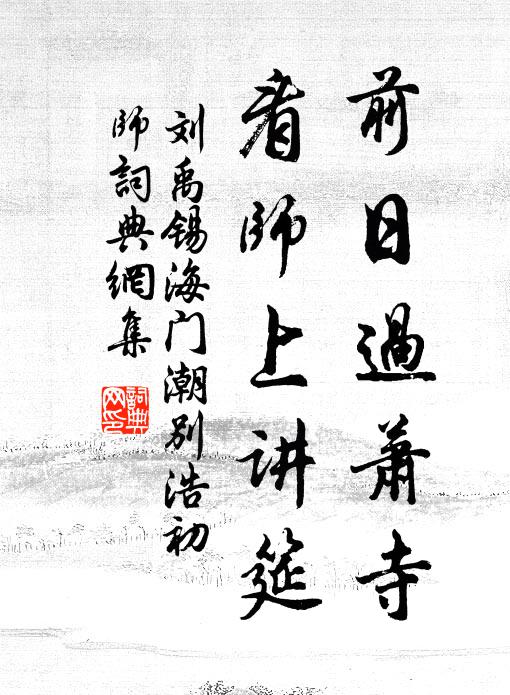 前日過蕭寺
看師上讲筵
刘禹锡海门潮别浩初
師詞典網集
詞典网印